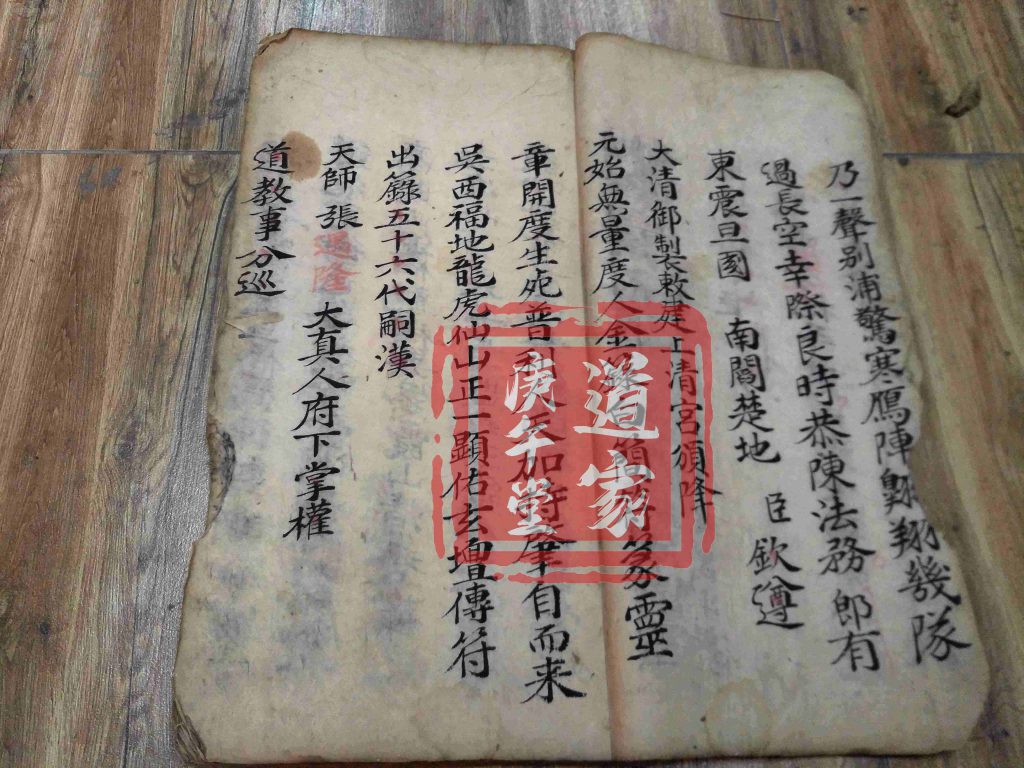 乃一聲别浦驚寒鴈陣翱翔幾隊
過長空幸際良時恭陳法務 郎有
東震旦國 南閻楚地 臣 欽遵
大清御製敕建上清宮頒降
元始無量度人金篆靈
章開度生死普天加肇自而来
吳西福地龍虎仙山正一顯佑玄壇傳符
出籙五十六代嗣漢
天師 張 遇隆 大真人府下掌權
道教事分巡
道家
庚午堂